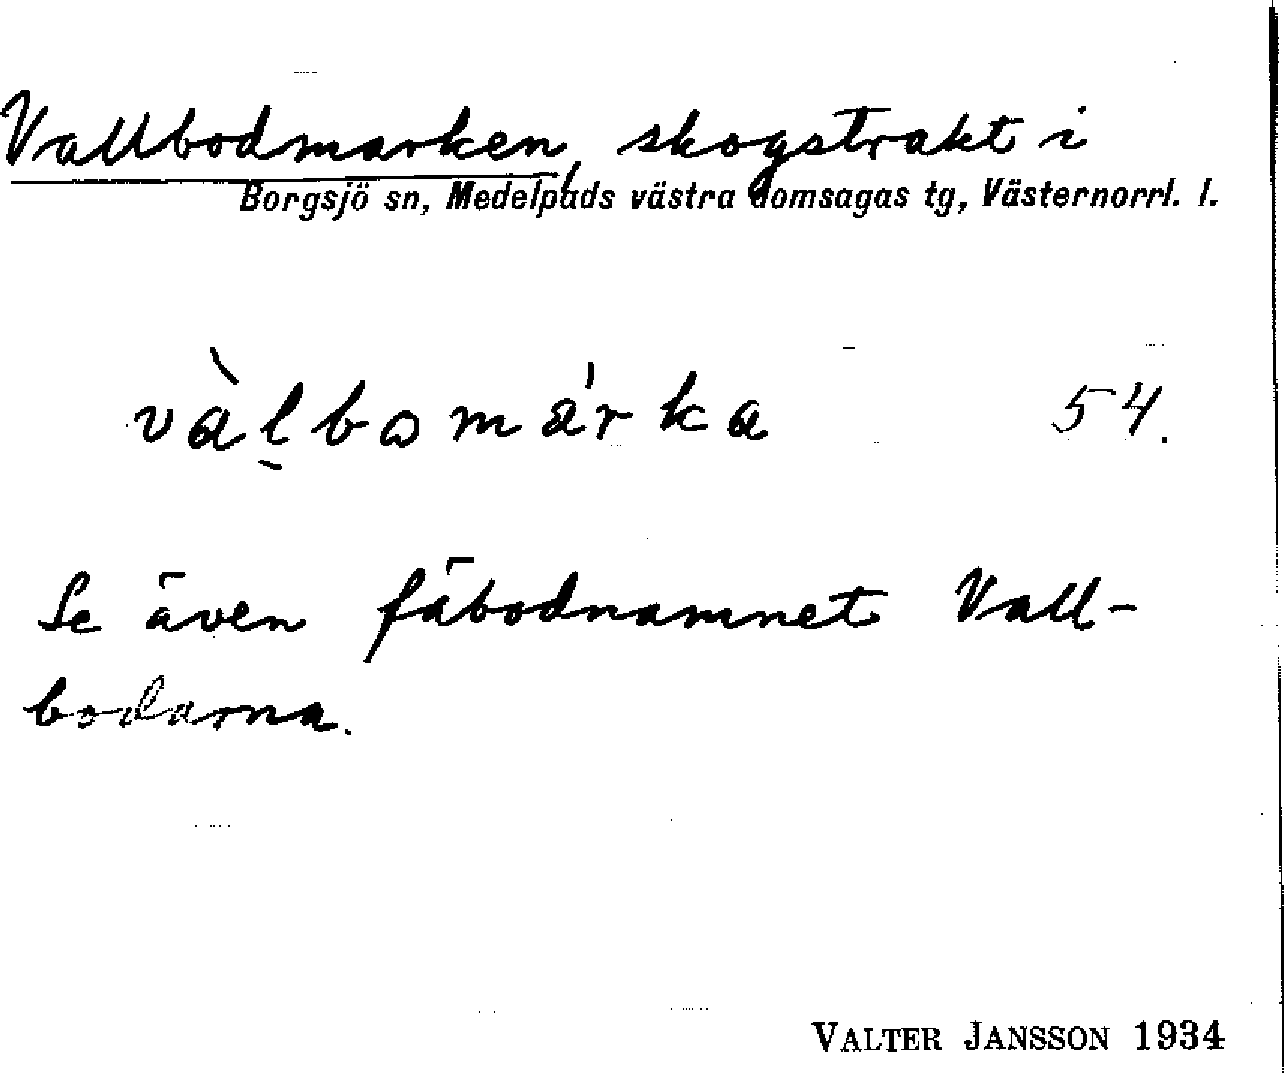 Vallbodmarken, skogstrakt i
Borgsjö sn, Medelpads västra domsagas tg, Västernorrl. l.
và̀l̠boma̍rka 54.
Se även fäbodnamnet Vall-
bodarna.
VALTER JANSSON 1934